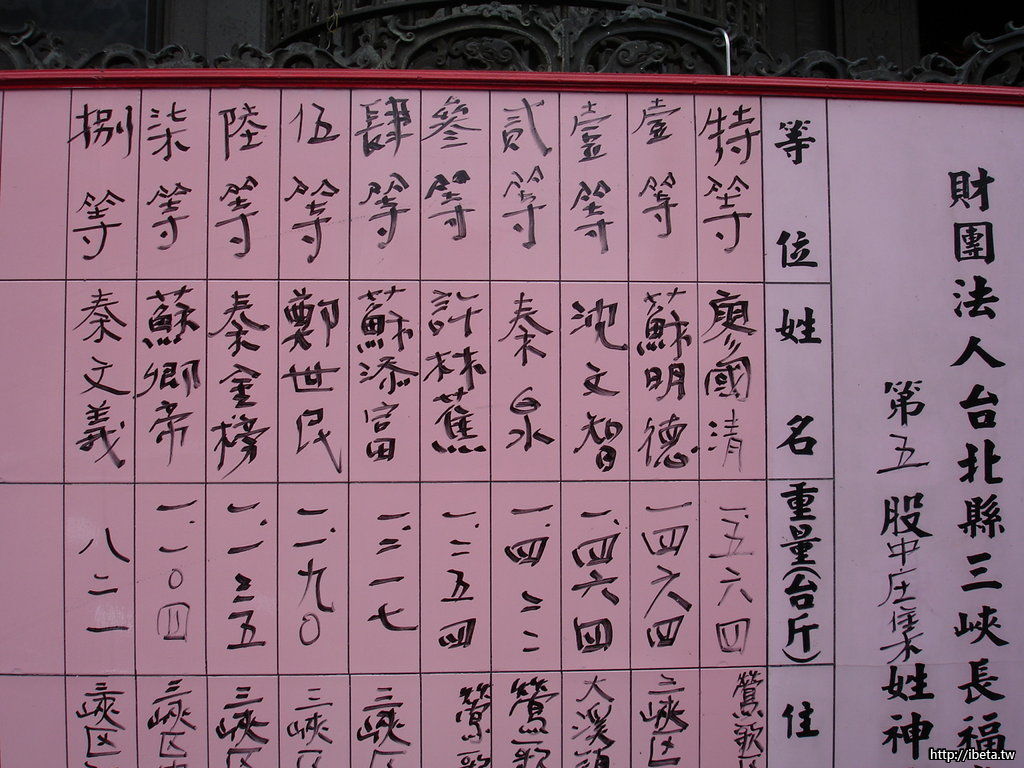 財團法人台北縣三峽長福
第五股中庄集姓神
等位 姓名 重量(台斤) 住
特等 廖國清 一.五六四 鶯歌
壹等 蘇明德 一四六四 三峽区
壹等 沈文智 一.四六四 大溪
貳等 秦泉 一.四二二 鶯歌
參等 許林蕉 一.二五四 鶯歌
肆等 蘇添富 一.二一七 三峽区
伍等 鄭世民 一.一九〇 三峽区
陸等 秦金榜 一.一三五 三峽区
柒等 蘇卿帝 一.一〇四 三峽区
捌等 秦文義 八二一 三峽区
http://ibeta.tw